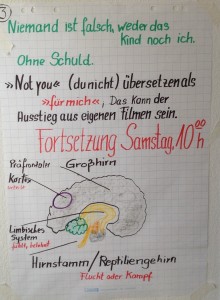 3
Niemand ist falsch, weder das
Kind noch ich.
Ohne Schuld.
»Not you« (du nicht) übersetzen als
»für mich«, Das Kann der
Ausstieg aus eigenen Filmen sein.
Fortsetzung Samstag, 10⁰⁰ h
Präfrontaler
Kortex
Großhirn
Limbisches
System
fühlt, belohnt
Hirnstamm/Reptiliengehirn
Flucht oder Kampf